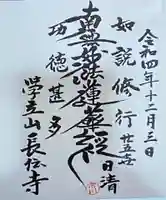 令和四年十二月三日
如説修行
南無妙法蓮華経
日清
功德甚多
學立山長松寺